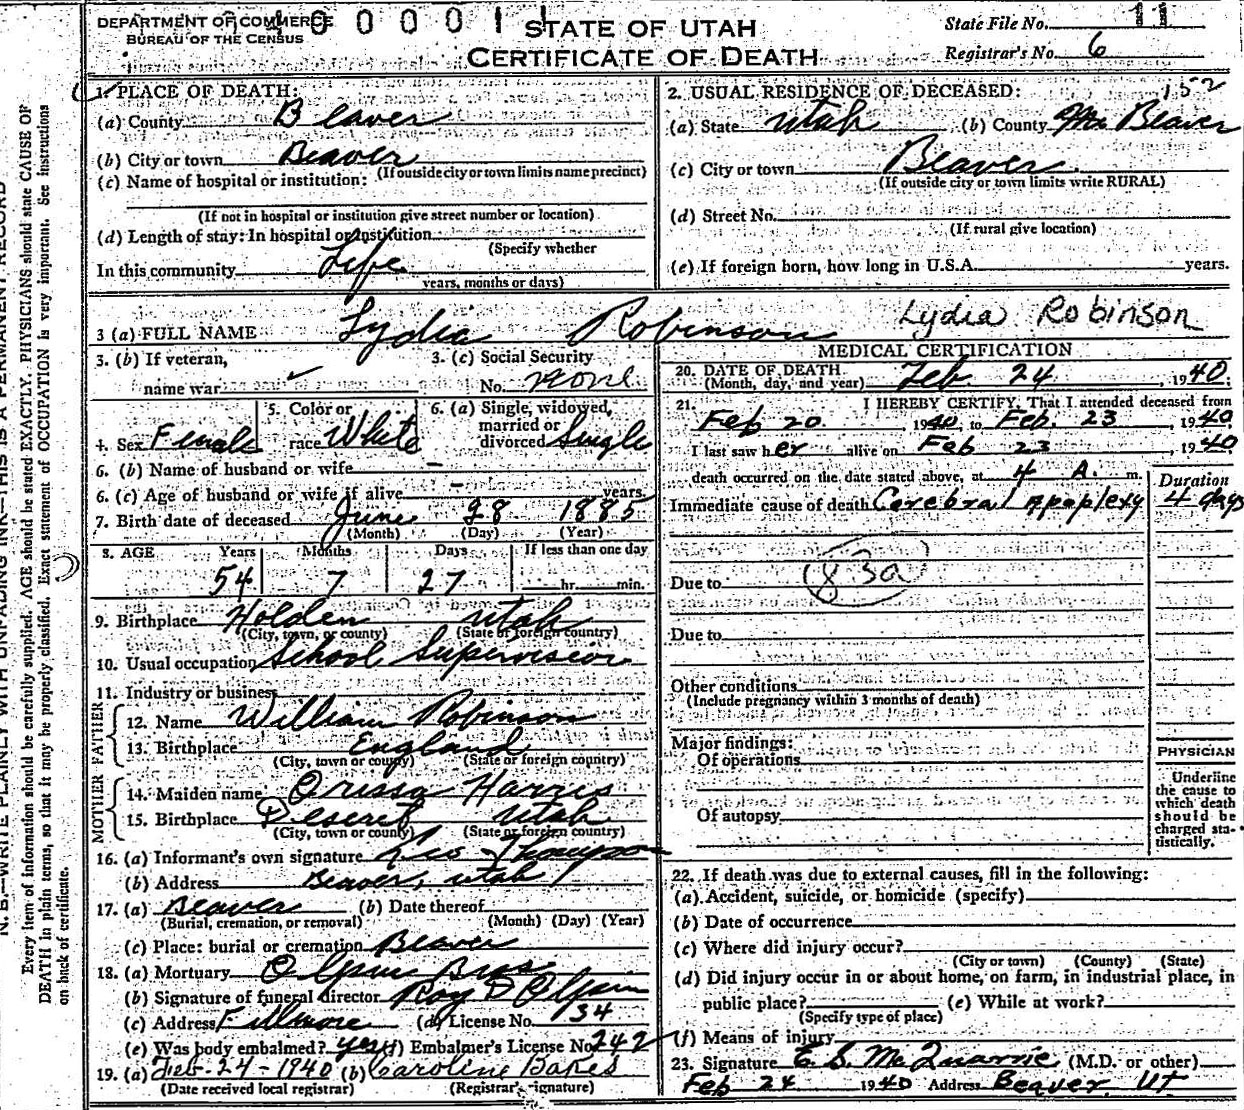 DEPARTMENT OF COMMERCE
BUREAU OF THE CENSUS
STATE OF UTAH
CERTIFICATE OF DEATH
State File No. 11
Registrar's No. 6
N. B.—WRITE PLAINLY WITH UNFADING INK—THIS IS A PERMANENT RECORD
Every item of information should be carefully supplied. AGE should be stated EXACTLY. PHYSICIANS should state CAUSE OF
DEATH in plain terms, so that it may be properly classified. Exact statement of OCCUPATION is very important. See instructions
on back of certificate.
1. PLACE OF DEATH:
(a) County Beaver
(b) City or town Beaver
(If outside city or town limits name precinct)
(c) Name of hospital or institution:
(If not in hospital or institution give street number or location)
(d) Length of stay: In hospital or institution
(Specify whether
In this community Life
years, months or days)
2. USUAL RESIDENCE OF DECEASED: 152
(a) State Utah (b) County Beaver
(c) City or town Beaver
(If outside city or town limits write RURAL)
(d) Street No.
(If rural give location)
(e) If foreign born, how long in U.S.A. years.
3 (a) FULL NAME Lydia Robinson Lydia Robinson
3. (b) If veteran,
name war
3. (c) Social Security
No. none
4. Sex Female
5. Color or
race White
6. (a) Single, widowed,
married or
divorced Single
6. (b) Name of husband or wife –
6. (c) Age of husband or wife if alive – years.
7. Birth date of deceased June 28 1885
(Month) (Day) (Year)
8. AGE Years Months Days If less than one day
54 7 27 hr. min.
9. Birthplace Holden Utah
(City, town, or county) (State or foreign country)
10. Usual occupation School Supervisior
11. Industry or business
FATHER
12. Name William Robinson
13. Birthplace England
(City, town or county) (State or foreign country)
MOTHER
14. Maiden name Orissa Harris
15. Birthplace Deseret Utah
(City, town or county) (State or foreign country)
16. (a) Informant's own signature Leo Thompson
(b) Address Beaver, Utah
17. (a) Beaver (b) Date thereof
(Burial, cremation, or removal) (Month) (Day) (Year)
(c) Place: burial or cremation Beaver
18. (a) Mortuary Olpin Bros
(b) Signature of funeral director Roy D Olpin
(c) Address Fillmore (d) License No. 34
(e) Was body embalmed? yes (f) Embalmer's License No. 242
19. (a) Feb-24-1940 (b) Caroline Bakes
(Date received local registrar) (Registrar's signature)
MEDICAL CERTIFICATION
20. DATE OF DEATH
(Month, day, and year) Feb. 24, 1940.
21. I HEREBY CERTIFY, That I attended deceased from
Feb 20 1940, to Feb. 23, 1940
I last saw her alive on Feb 23, 1940
death occurred on the date stated above, at 4 A. m.
Duration
Immediate cause of death Cerebral Apoplexy 4 days
Due to 83a
Due to
Other conditions
(Include pregnancy within 3 months of death)
Major findings:
Of operations
Of autopsy
PHYSICIAN
Underline
the cause to
which death
should be
charged sta-
tistically.
22. If death was due to external causes, fill in the following:
(a) Accident, suicide, or homicide (specify)
(b) Date of occurrence
(c) Where did injury occur?
(City or town) (County) (State)
(d) Did injury occur in or about home, on farm, in industrial place, in
public place? (e) While at work?
(Specify type of place)
(f) Means of injury
23. Signature E. S. McQuarrie (M.D. or other)
Feb 24 1940 Address Beaver Ut